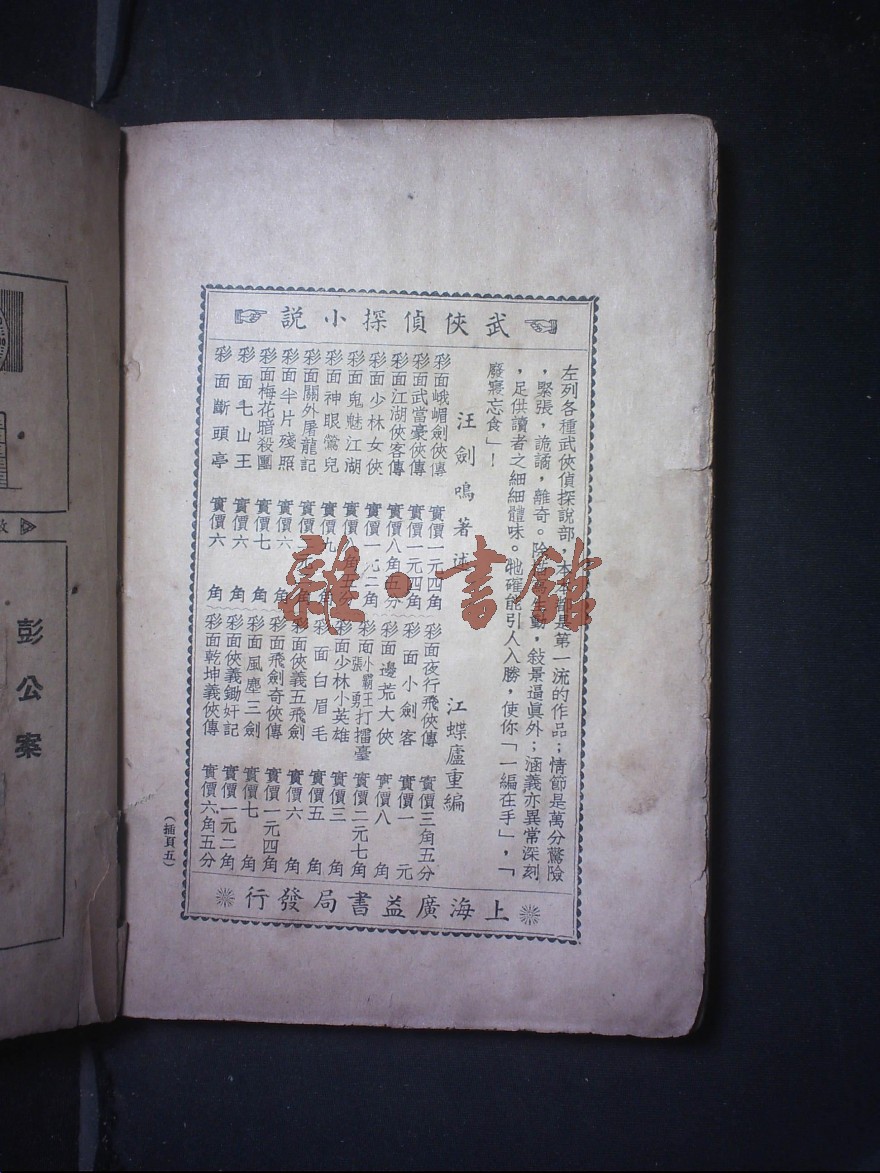 武俠偵探小說
左列各種武俠偵探說部,本都是第一流的作品;情節是萬分驚險
,緊張,詭譎,離奇。除生動,敍景逼眞外;涵義亦異常深刻
,足供讀者之細細體味。牠確能引人入勝,使你「一編在手」,「
廢寢忘食」!
汪劍鳴著述
彩面峨嵋劍俠傳 實價一元四角
彩面武當豪俠傳 實價一元四角
彩面江湖俠客傳 實價八角五分
彩面少林女俠 實價一元二角
彩面鬼魅江湖 實價八角五分
彩面神眼鶯兒 實價九角
彩面關外屠龍記 實價元角
彩面半片殘照 實價六角
彩面梅花暗殺團 實價七角
彩面七山王 實價六角
彩面斷頭亭 實價六角
江蝶廬重編
彩面夜行飛俠傳 實價三角五分
彩面小劍客 實價一元
彩面邊荒大俠 實價八角
彩面小霸王張勇打擂臺 實價二元七角
彩面少林小英雄 實價三角
彩面白眉毛 實價五角
彩面俠義五飛劍 實價六角
彩面飛劍奇俠傳 實價一元四角
彩面風塵三劍 實價七角
彩面俠義鋤奸記 實價一元二角
彩面乾坤義俠傳 實價六角五分
上海廣益書局發行
(插頁五)
彭公案
雜·書館